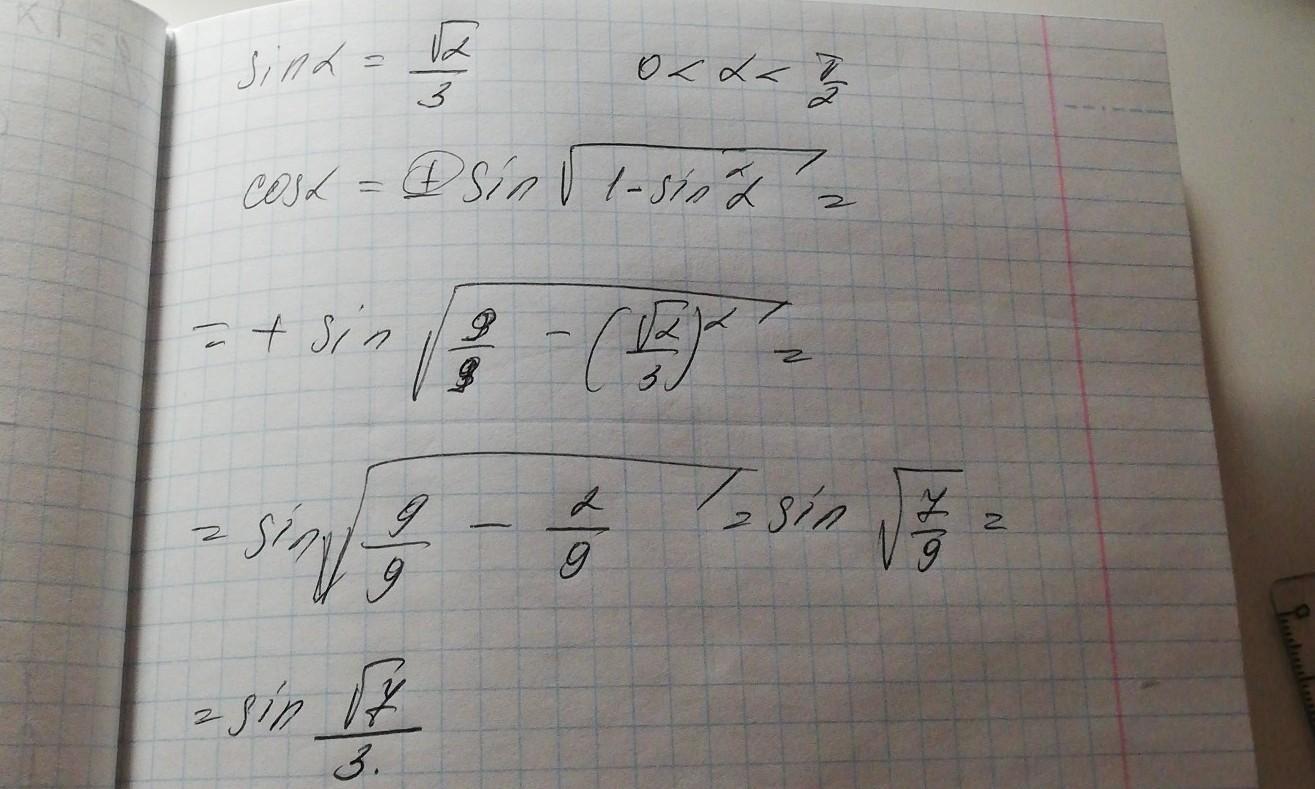 sinα = √2/3 0 < α < π/2
cosα = ± sin √(1 - sin²α) =
= + sin √(9/9 - (√2/3)²) =
= sin √(9/9 - 2/9) = sin √(7/9) =
= sin √7/3.